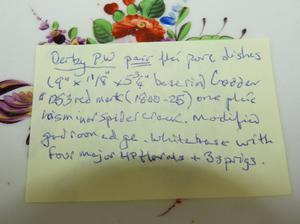 Derby PW pair flei porc dishes
(9" x 11/8" x 5¾" base rim) Codder
D53 red mark (1800-25) one
has minor spider crack. Modified
gadroon edge. White base with
four major HP florals + 3 sprigs.